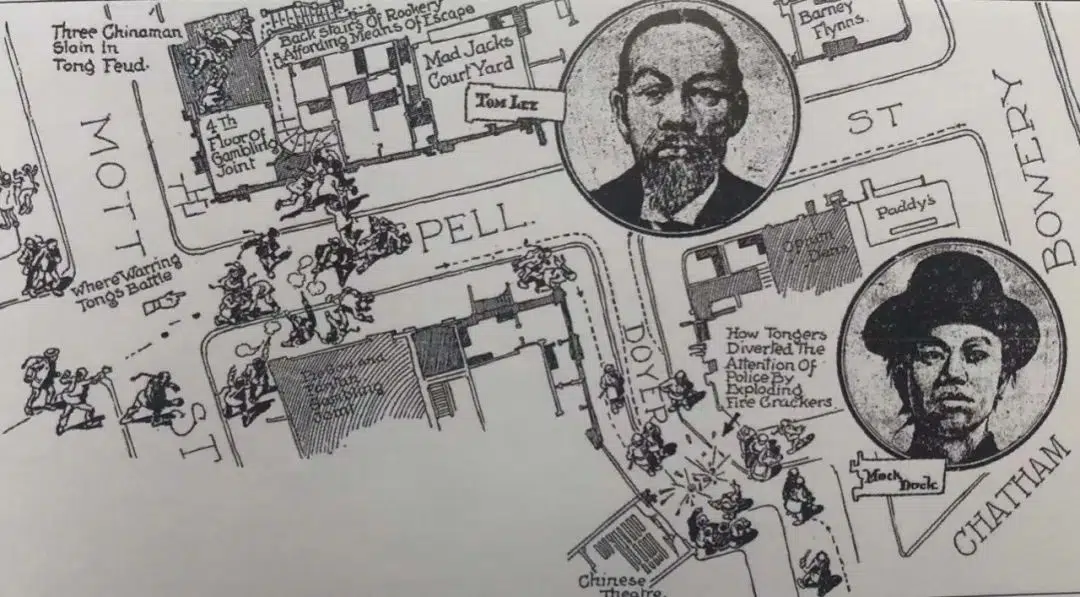 Three Chinaman
Slain In
Tong Feud.
Back Stairs Of Rookery
Affording Means Of Escape
Mad Jacks
Court Yard
Barney
Flynns.
TOM LEE
4Th
Floor Of
Gambling
Joint
MOTT
ST
PELL.
ST
BOWERY
Paddy's
Opium
Dens
Where Warring
Tongs Battle
DOYER
How Tongers
Diverted The
Attention Of
Police By
Exploding
Fire Crackers
Gambling
Joint
Mock
Duck.
CHATHAM
Chinese
Theatre.